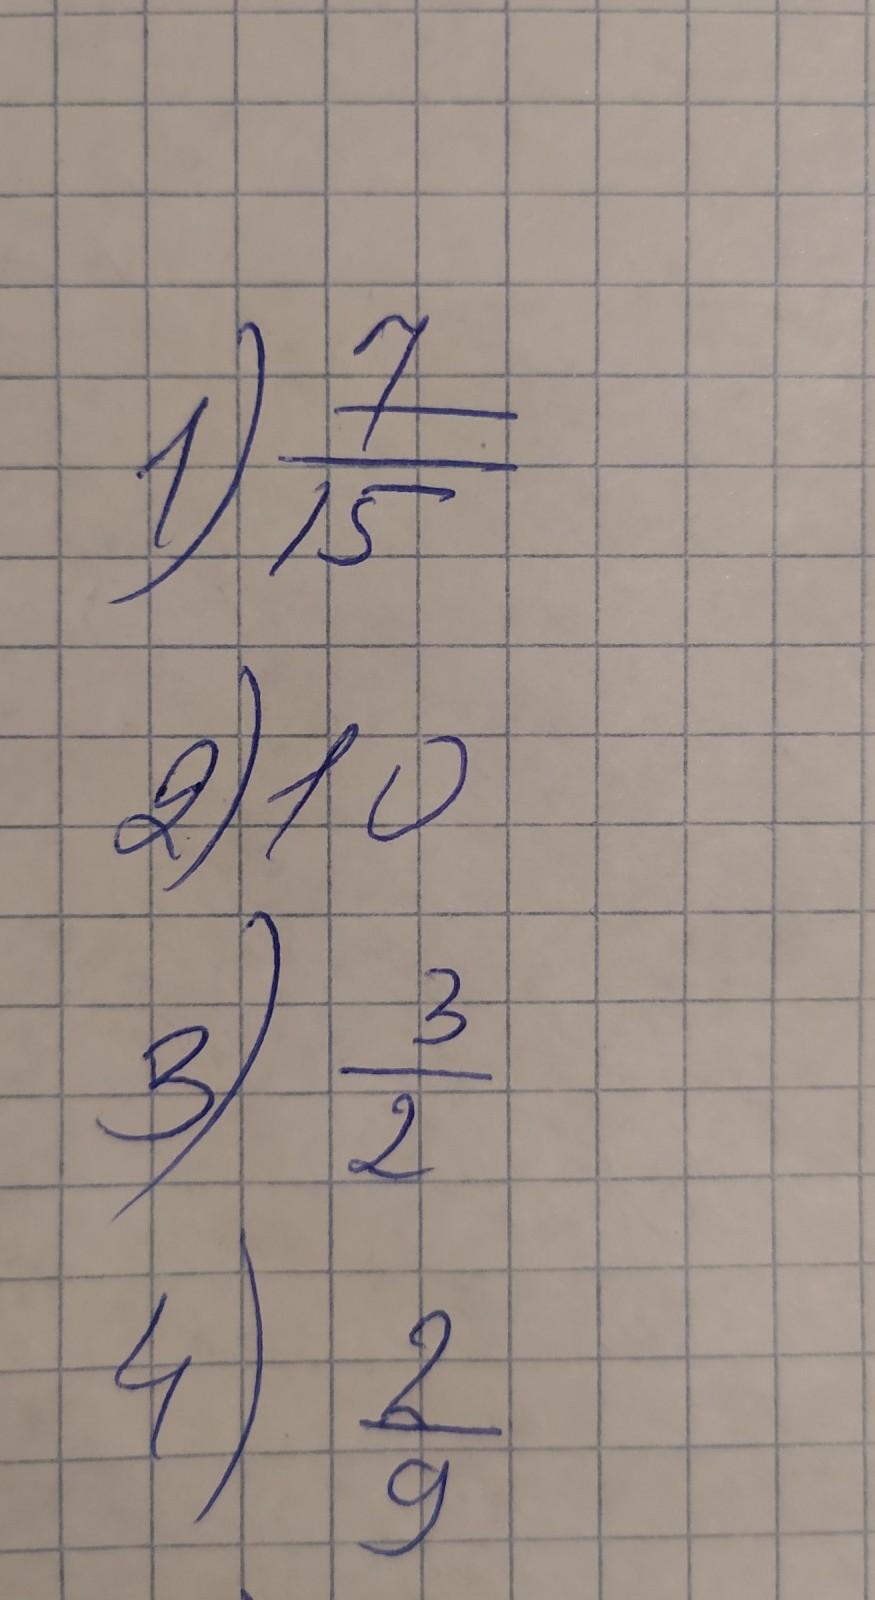 1) 7/15
2) 10
3) 3/2
4) 2/9